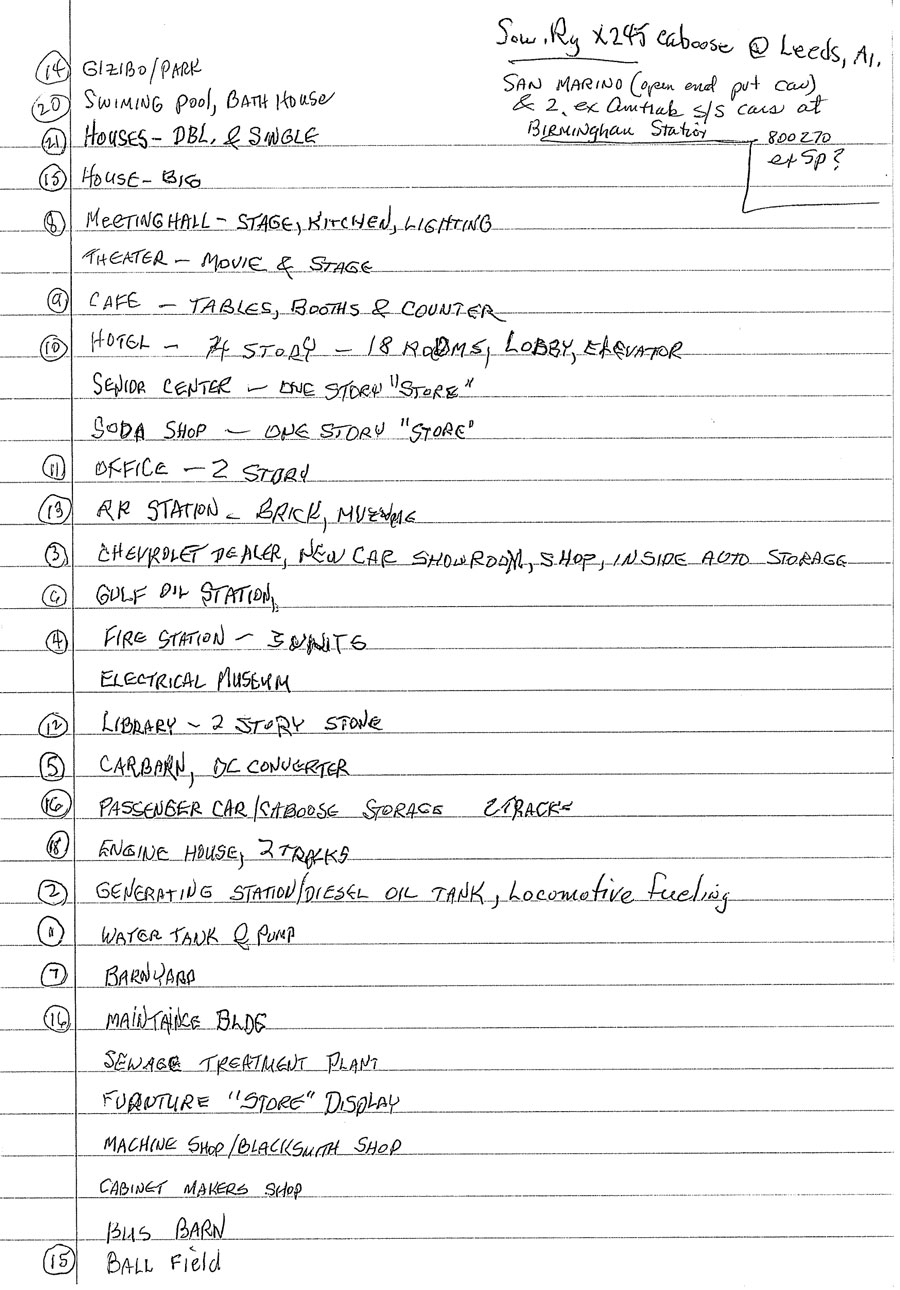 Sou. Ry X245 Caboose @ Leeds, Al.
SAN MARINO (open end pvt car)
& 2. ex Amtrak s/s cars at
Birmingham Station
800270
ex Sp?
(14) GIZIBO/PARK
(20) SWIMING POOL, BATH HOUSE
(21) HOUSES - DBL, & SINGLE
(15) HOUSE - BIG
(8) MEETING HALL - STAGE, KITCHEN, LIGHTING
THEATER - MOVIE & STAGE
(9) CAFE - TABLES, BOOTHS & COUNTER
(10) HOTEL - 4 STORY - 18 ROOMS, LOBBY, ELEVATOR
SENIOR CENTER - ONE STORY "STORE"
SODA SHOP - ONE STORY "STORE"
(11) OFFICE - 2 STORY
(13) RR STATION - BRICK,
(3) CHEVROLET DEALER, NEW CAR SHOWROOM, SHOP, INSIDE AUTO STORAGE
GULF OIL STATION,
(4) FIRE STATION - 3 UNITS
ELECTRICAL MUSEUM
(12) LIBRARY - 2 STORY STONE
(5) CARBARN, DC CONVERTER
(16) PASSENGER CAR/CABOOSE STORAGE 2 TRACKS
(18) ENGINE HOUSE, 2 TRACKS
(2) GENERATING STATION/DIESEL OIL TANK, Locomotive fueling
WATER TANK & PUMP
(7) BARNYARD
(16) MAINTAINCE BLDG
SEWAGE TREATMENT PLANT
FURNTURE "STORE" DISPLAY
MACHINE SHOP/BLACKSMITH SHOP
CABINET MAKERS SHOP
BUS BARN
(15) BALL Field